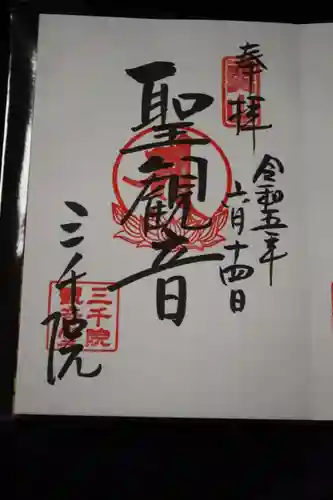 奉拝
令和五年
六月十四日
聖観音
三千院
三千院